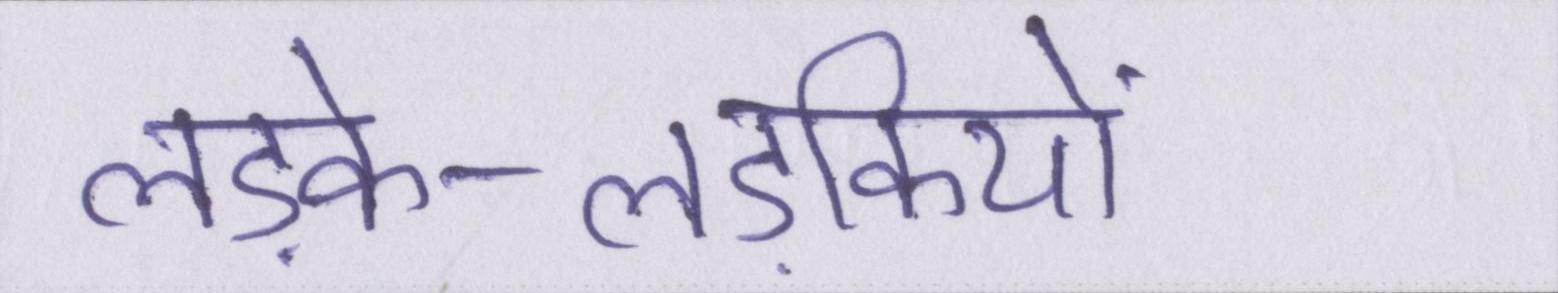 लड़के-लड़कियों